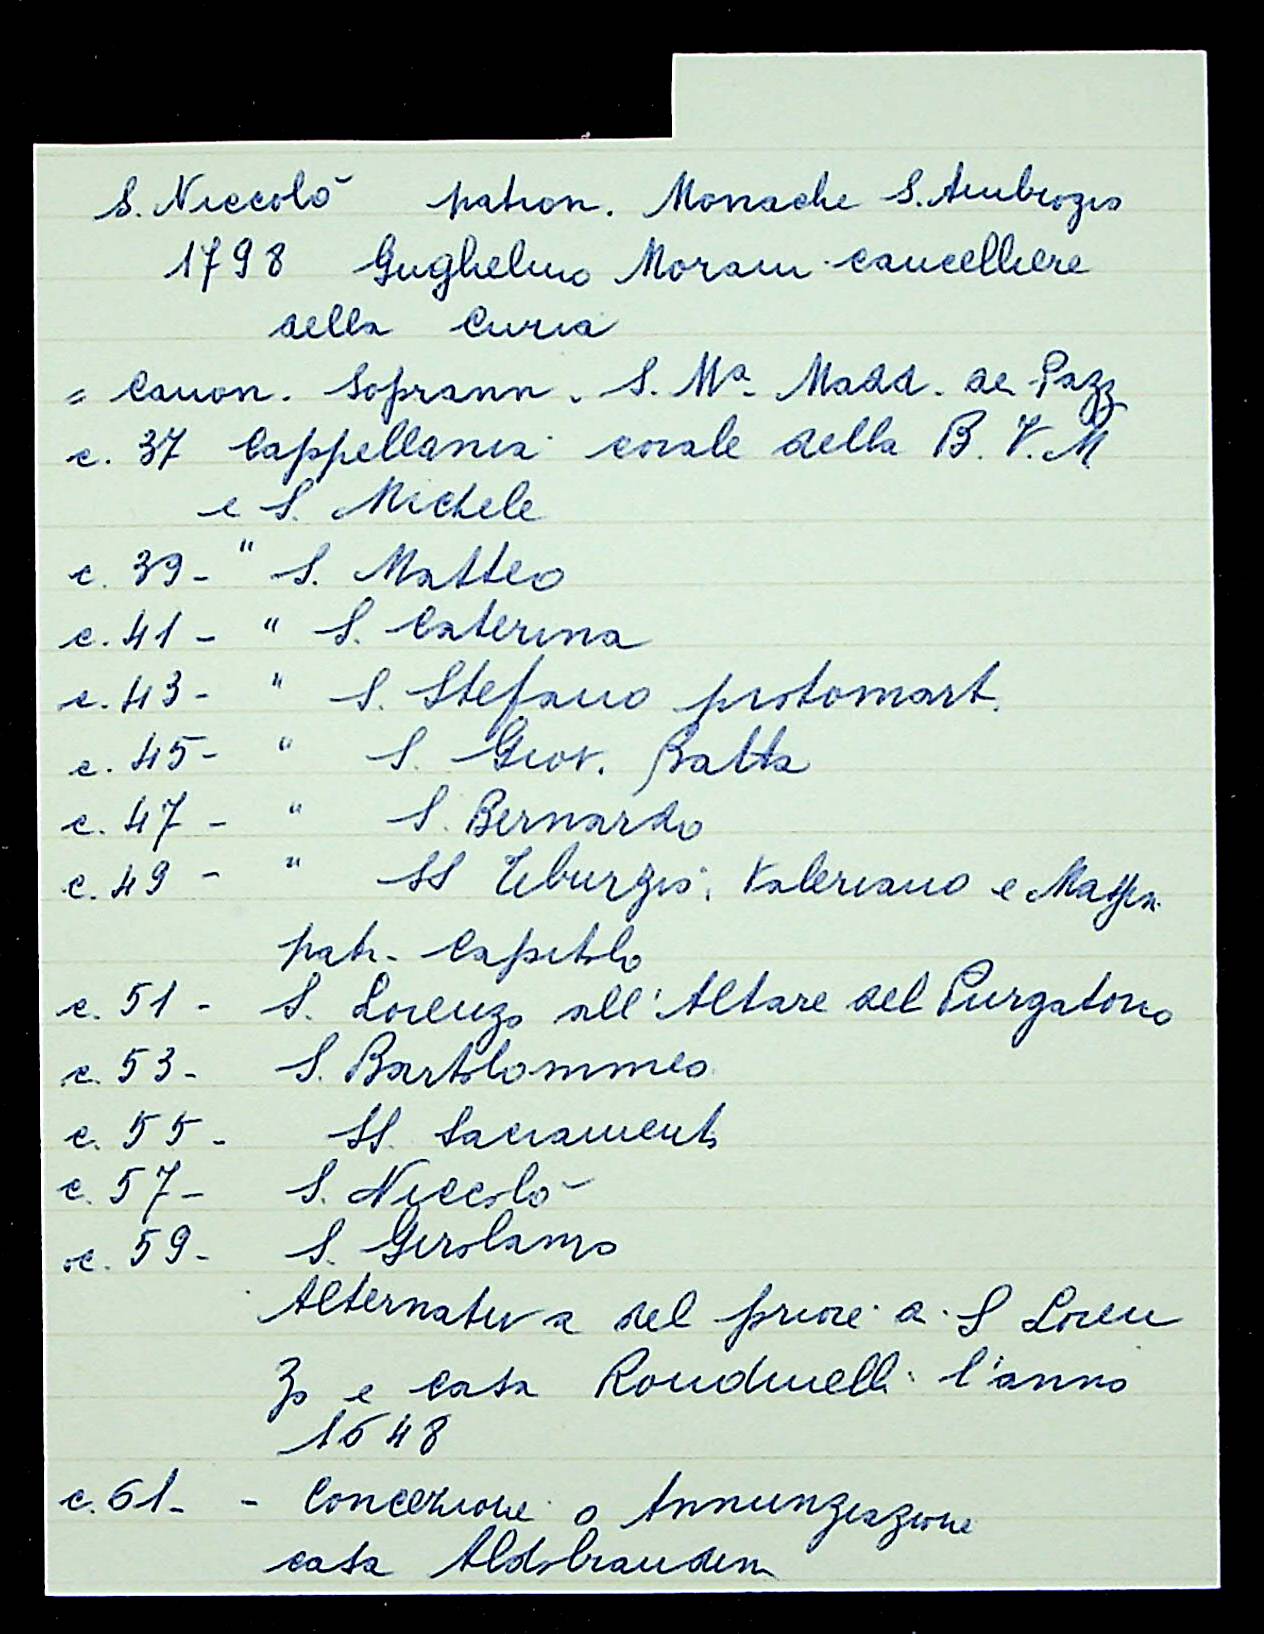 S. Niccolò patron. Monache S. Ambrogio
1798 Guglielmo Morani cancelliere
della Curia
= Canon. Soprann. S. Mª Madd. de Pazzi
c. 37 Cappellania corale della B. V. M
e S. Michele
c. 39 - " S. Matteo
c. 41 - " S. Caterina
c. 43 - " S. Stefano protomart.
c. 45 - " S. Giov. Batta
c. 47 - " S. Bernardo
c. 49 - " SS Tiburzio, Valeriano e
patr. Capitolo
c. 51 - S. Lorenzo all'Altare del Purgatorio
c. 53 - S. Bartolommeo
c. 55 - SS. Sacramento
c. 57 - S. Niccolò
c. 59 - S. Girolamo
Alternativa del priore di S Loren
zo e casa Rondinelli l'anno
1648
c. 61 - - Concezione o Annunziazione
casa Aldobrandini